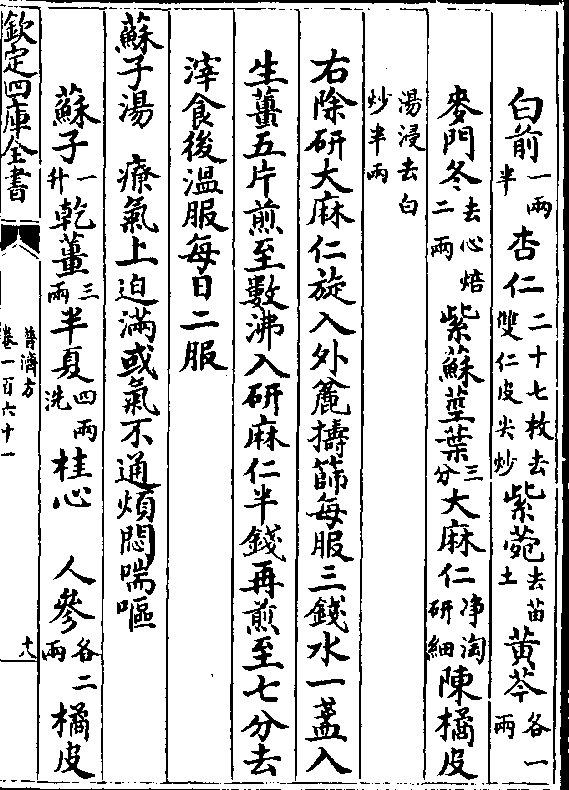 白前一兩半 杏仁二十七枚去雙仁皮尖炒 紫菀去苗土 黃芩各一兩
麥門冬去心焙二兩 紫蘇莖葉三分 大麻仁净淘研細 陳橘皮
湯浸去白炒半兩
右除研大麻仁旋入外麄擣篩每服三錢水一盞入
生薑五片煎至數沸入研麻仁半錢再煎至七分去
滓食後溫服每日二服
蘇子湯 療氣上迫滿或氣不通煩悶喘嘔
蘇子一升 乾薑三兩 半夏四兩洗 桂心 人參各二兩 橘皮
欽定四庫全書
普濟方
卷一百六十一
十八